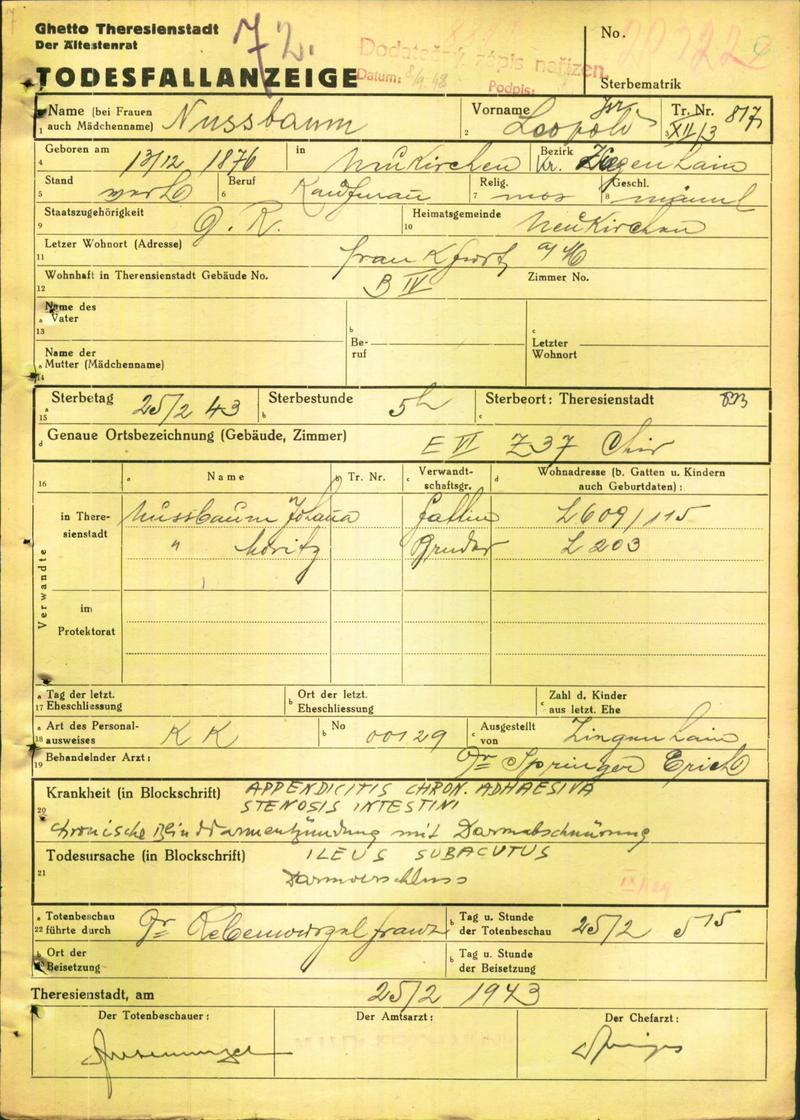 Ghetto Theresienstadt
Der Ältestenrat
72.
Dodatečný zápis nařízen
Datum: Podpis:
No.
TODESFALLANZEIGE
Sterbematrik
Name (bei Frauen auch Mädchenname) Nussbaum Vorname Leopold Isr. Tr. Nr. 817 XII/3
1 2 3
Geboren am 13/12 1876 in Neukirchen Bezirk Kr. Ziegenhain
4
Stand verh Beruf Kaufmann Relig. mos Geschl. männl
5 6 7 8
Staatszugehörigkeit D. R. Heimatsgemeinde Neukirchen
9 10
Letzer Wohnort (Adresse) Frankfurt a/M
11
Wohnhaft in Theresienstadt Gebäude No. B IV Zimmer No.
12
Name des Vater
a b c
13 Beruf Letzter Wohnort
Name der Mutter (Mädchenname)
a
14
Sterbetag 25/2 43 Sterbestunde 5h Sterbeort: Theresienstadt
a 15 b c
d Genaue Ortsbezeichnung (Gebäude, Zimmer) E VI Z 37 Chir
16 a Name b Tr. Nr. c Verwandtschaftsgr. d Wohnadresse (b. Gatten u. Kindern auch Geburtdaten):
Verwandte
in Theresienstadt Nussbaum Johana Gattin L 609/115
" Moritz Bruder L 203
im Protektorat
a 17 Tag der letzt. Eheschliessung b Ort der letzt. Eheschliessung c Zahl d. Kinder aus letzt. Ehe
a 18 Art des Personalausweises K K b No 00129 c Ausgestellt von Ziegenhain
19 Behandelnder Arzt: Dr Springer Erich
Krankheit (in Blockschrift) APPENDICITIS CHRON. ADHAESIVA
20 STENOSIS INTESTINI
Chronische Blinddarmentzündung mit Darmabschnürung
Todesursache (in Blockschrift) ILEUS SUBACUTUS
21 Darmverschluss
a 22 Totenbeschau führte durch Dr Rebenwurzel Franz b Tag u. Stunde der Totenbeschau 25/2 5 15
Ort der Beisetzung b Tag u. Stunde der Beisetzung
Theresienstadt, am 25/2 1943
Der Totenbeschauer: Der Amtsarzt: Der Chefarzt:
Springer